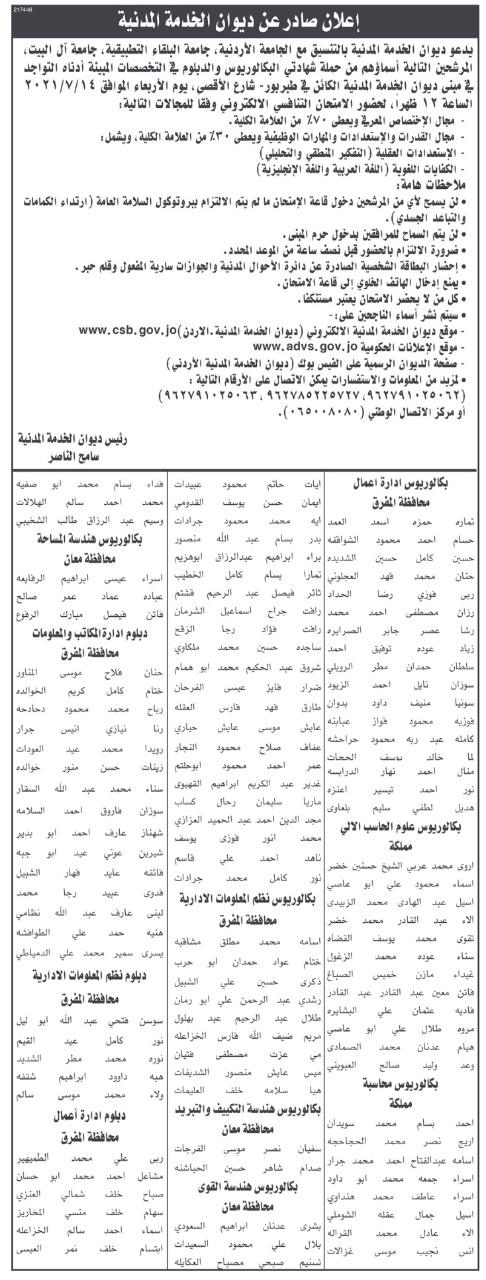 217446
إعلان صادر عن ديوان الخدمة المدنية
يدعو ديوان الخدمة المدنية بالتنسيق مع الجامعة الأردنية، جامعة البلقاء التطبيقية، جامعة آل البيت،
المرشحين التالية أسماؤهم من حملة شهادتي البكالوريوس والدبلوم في التخصصات المبينة أدناه التواجد
في مبنى ديوان الخدمة المدنية الكائن في طبربور- شارع الأقصى، يوم الأربعاء الموافق ٢٠٢١/٧/١٤
الساعة ١٢ ظهراً، لحضور الامتحان التنافسي الالكتروني وفقا للمجالات التالية:
- مجال الإختصاص المعرفي ويعطى ٧٠٪ من العلامة الكلية.
- مجال القدرات والإستعدادات والمهارات الوظيفية ويعطى ٣٠٪ من العلامة الكلية، ويشمل:
- الإستعدادات العقلية (التفكير المنطقي والتحليلي)
- الكفايات اللغوية (اللغة العربية واللغة الإنجليزية)
ملاحظات هامة:
• لن يسمح لأي من المرشحين دخول قاعة الإمتحان ما لم يتم الالتزام ببروتوكول السلامة العامة (ارتداء الكمامات
والتباعد الجسدي).
• لن يتم السماح للمرافقين بدخول حرم المبنى.
• ضرورة الالتزام بالحضور قبل نصف ساعة من الموعد المحدد.
• إحضار البطاقة الشخصية الصادرة عن دائرة الأحوال المدنية والجوازات سارية المفعول وقلم حبر.
• يمنع إدخال الهاتف الخلوي إلى قاعة الامتحان.
• كل من لا يحضر الامتحان يعتبر مستنكفا.
• سيتم نشر أسماء الناجحين على:-
- موقع ديوان الخدمة المدنية الالكتروني (ديوان الخدمة المدنية.الاردن) www.csb.gov.jo
- موقع الإعلانات الحكومية www.advs.gov.jo
- صفحة الديوان الرسمية على الفيس بوك (ديوان الخدمة المدنية الأردني)
• لمزيد من المعلومات والاستفسارات يمكن الاتصال على الأرقام التالية :
(٩٦٢٧٩١٠٢٥٠٦٢، ٩٦٢٧٨٥٢٢٥٧٢٧، ٩٦٢٧٩١٠٢٥٠٦٣)
أو مركز الاتصال الوطني (٠٦٥٠٠٨٠٨٠).
رئيس ديوان الخدمة المدنية
سامح الناصر
بكالوريوس ادارة اعمال
محافظة المفرق
تماره حمزه اسعد العمد
حسام احمد محمود الشوافقه
حسين كامل حسين الشديده
حنان محمد فهد العجلوني
ربى فوزي رضا الحداد
رزان مصطفى احمد محمد
رشا عصر جابر الصرايره
زياد عوده توفيق احمد
سلطان حمدان مطر الرويلي
سوزان نايل احمد الزيود
سونيا منيف داود بدوان
فوزيه محمود فواز عبابنه
كامله عبد ربه محمود حراحشه
لما خالد يوسف الحجات
منال احمد نهار الدرابسه
نور احمد تيسير اعنزه
هديل لطفي سليم بلعاوي
بكالوريوس علوم الحاسب الالي
مملكة
اروى محمد عربي الشيخ حسنين خضر
اسماء محمود علي ابو عاصي
اسيل عبد الهادي محمد الزبيدي
الاء عبد القادر محمد خضر
تقوى محمد يوسف القضاه
سناء عوده محمد الزغول
غيداء مازن خميس الصباغ
فاتن معين عبد القادر عبد القادر
فاديه عثمان علي البشايره
مروه طلال علي ابو عاصي
هيام عدنان محمد الصمادي
وعد وليد صالح العبويني
بكالوريوس محاسبة
مملكة
احمد بسام محمد سويدان
اريج نصر محمد الحجاحجه
اسامه عبدالفتاح احمد محمد جرار
اسراء جمعه محمد ابو داود
اسراء عاطف محمد هنداوي
اسيل جمال عقله الشوملي
الاء عادل محمد القراله
انس نجيب موسى غزالات
ايات حاتم محمود عبيدات
ايمان حسن يوسف القدومي
ايه محمد محمود جرادات
بدر بسام عبد الله منصور
براء ابراهيم عبدالرزاق ابوهزيم
تمارا بسام كامل الخطيب
ثائر فيصل عبد الرحيم قشتم
رافت جراح اسماعيل الشرمان
رافت فؤاد رجا الزقح
ساجده حسين محمد ملكاوي
شروق عبد الحكيم محمد ابو همام
ضرار فايز عيسى الفرحان
طارق فهد فارس العقله
عايش موسى عايش حباري
عفاف صلاح محمود النجار
عمر احمد محمود ابوحلتم
غدير عبد الكريم ابراهيم القهيوي
ماريا سليمان رحال كساب
مجد الدين احمد عبد الحميد العزازي
محمد انور فوزي يوسف
ناهد احمد علي قاسم
نور كامل محمد جرادات
بكالوريوس نظم المعلومات الادارية
محافظة المفرق
اسامه محمد مطلق مشاقبه
ختام عواد حمدان ابو حرب
ذكرى حسين علي الشبيل
رشدي عبد الرحمن علي ابو رمان
طلال عبد الرحيم عبد بهلول
مريم ضيف الله فارس الخزاعله
مي عزت مصطفى فتيان
ميس عايش منصور الشديفات
هيا سلامه خلف العليمات
بكالوريوس هندسة التكييف والتبريد
محافظة معان
سفيان نصر موسى الفرجات
صدام شاهر حسين الحباشنه
بكالوريوس هندسة القوى
محافظة معان
بشرى عدنان ابراهيم السعودي
بلال علي محمود السعيدات
تسنيم صبحي مصباح العكايله
فداء بسام محمد ابو صفيه
محمد احمد سالم الهلالات
وسيم عبد الرزاق طالب الشخيبي
بكالوريوس هندسة المساحة
محافظة معان
اسراء عيسى ابراهيم الرفايعه
عباده عماد عمر صالح
فاتن فيصل مبارك الرفوع
دبلوم ادارة المكاتب والمعلومات
محافظة المفرق
حنان فلاح موسى المناور
ختام كامل كريم الخوالده
رباح محمد محمود دحادحه
رنا نيازي انيس جرار
رويدا محمد عيد العودات
زينات حسن منور خوالده
سناء محمد عبد الله السقار
سوزان فاروق احمد السلامه
شهناز عارف احمد ابو بدير
شيرين عوني عبد ابو جبه
فائقه عايد فهار الشبيل
فدوى عبيد رجا محمد
لبنى عارف عبد الله نظامي
هنيه حمد علي الطوافشه
يسرى سمير محمد علي الدمياطي
دبلوم نظم المعلومات الادارية
محافظة المفرق
سوسن فتحي عبد الله ابو ليل
نور كامل عيد القيم
نوره محمد مطر الشديد
هبه داوود ابراهيم شقفه
ولاء محمد موسى سالم
دبلوم ادارة أعمال
محافظة المفرق
ربى علي محمد الطميهير
مشاعل احمد محمد ابو حسان
صباح خلف شمالي العنزي
سهام خلف منسي المخاريز
اسماء احمد سالم الخزاعله
ابتسام خلف نمر العيسى